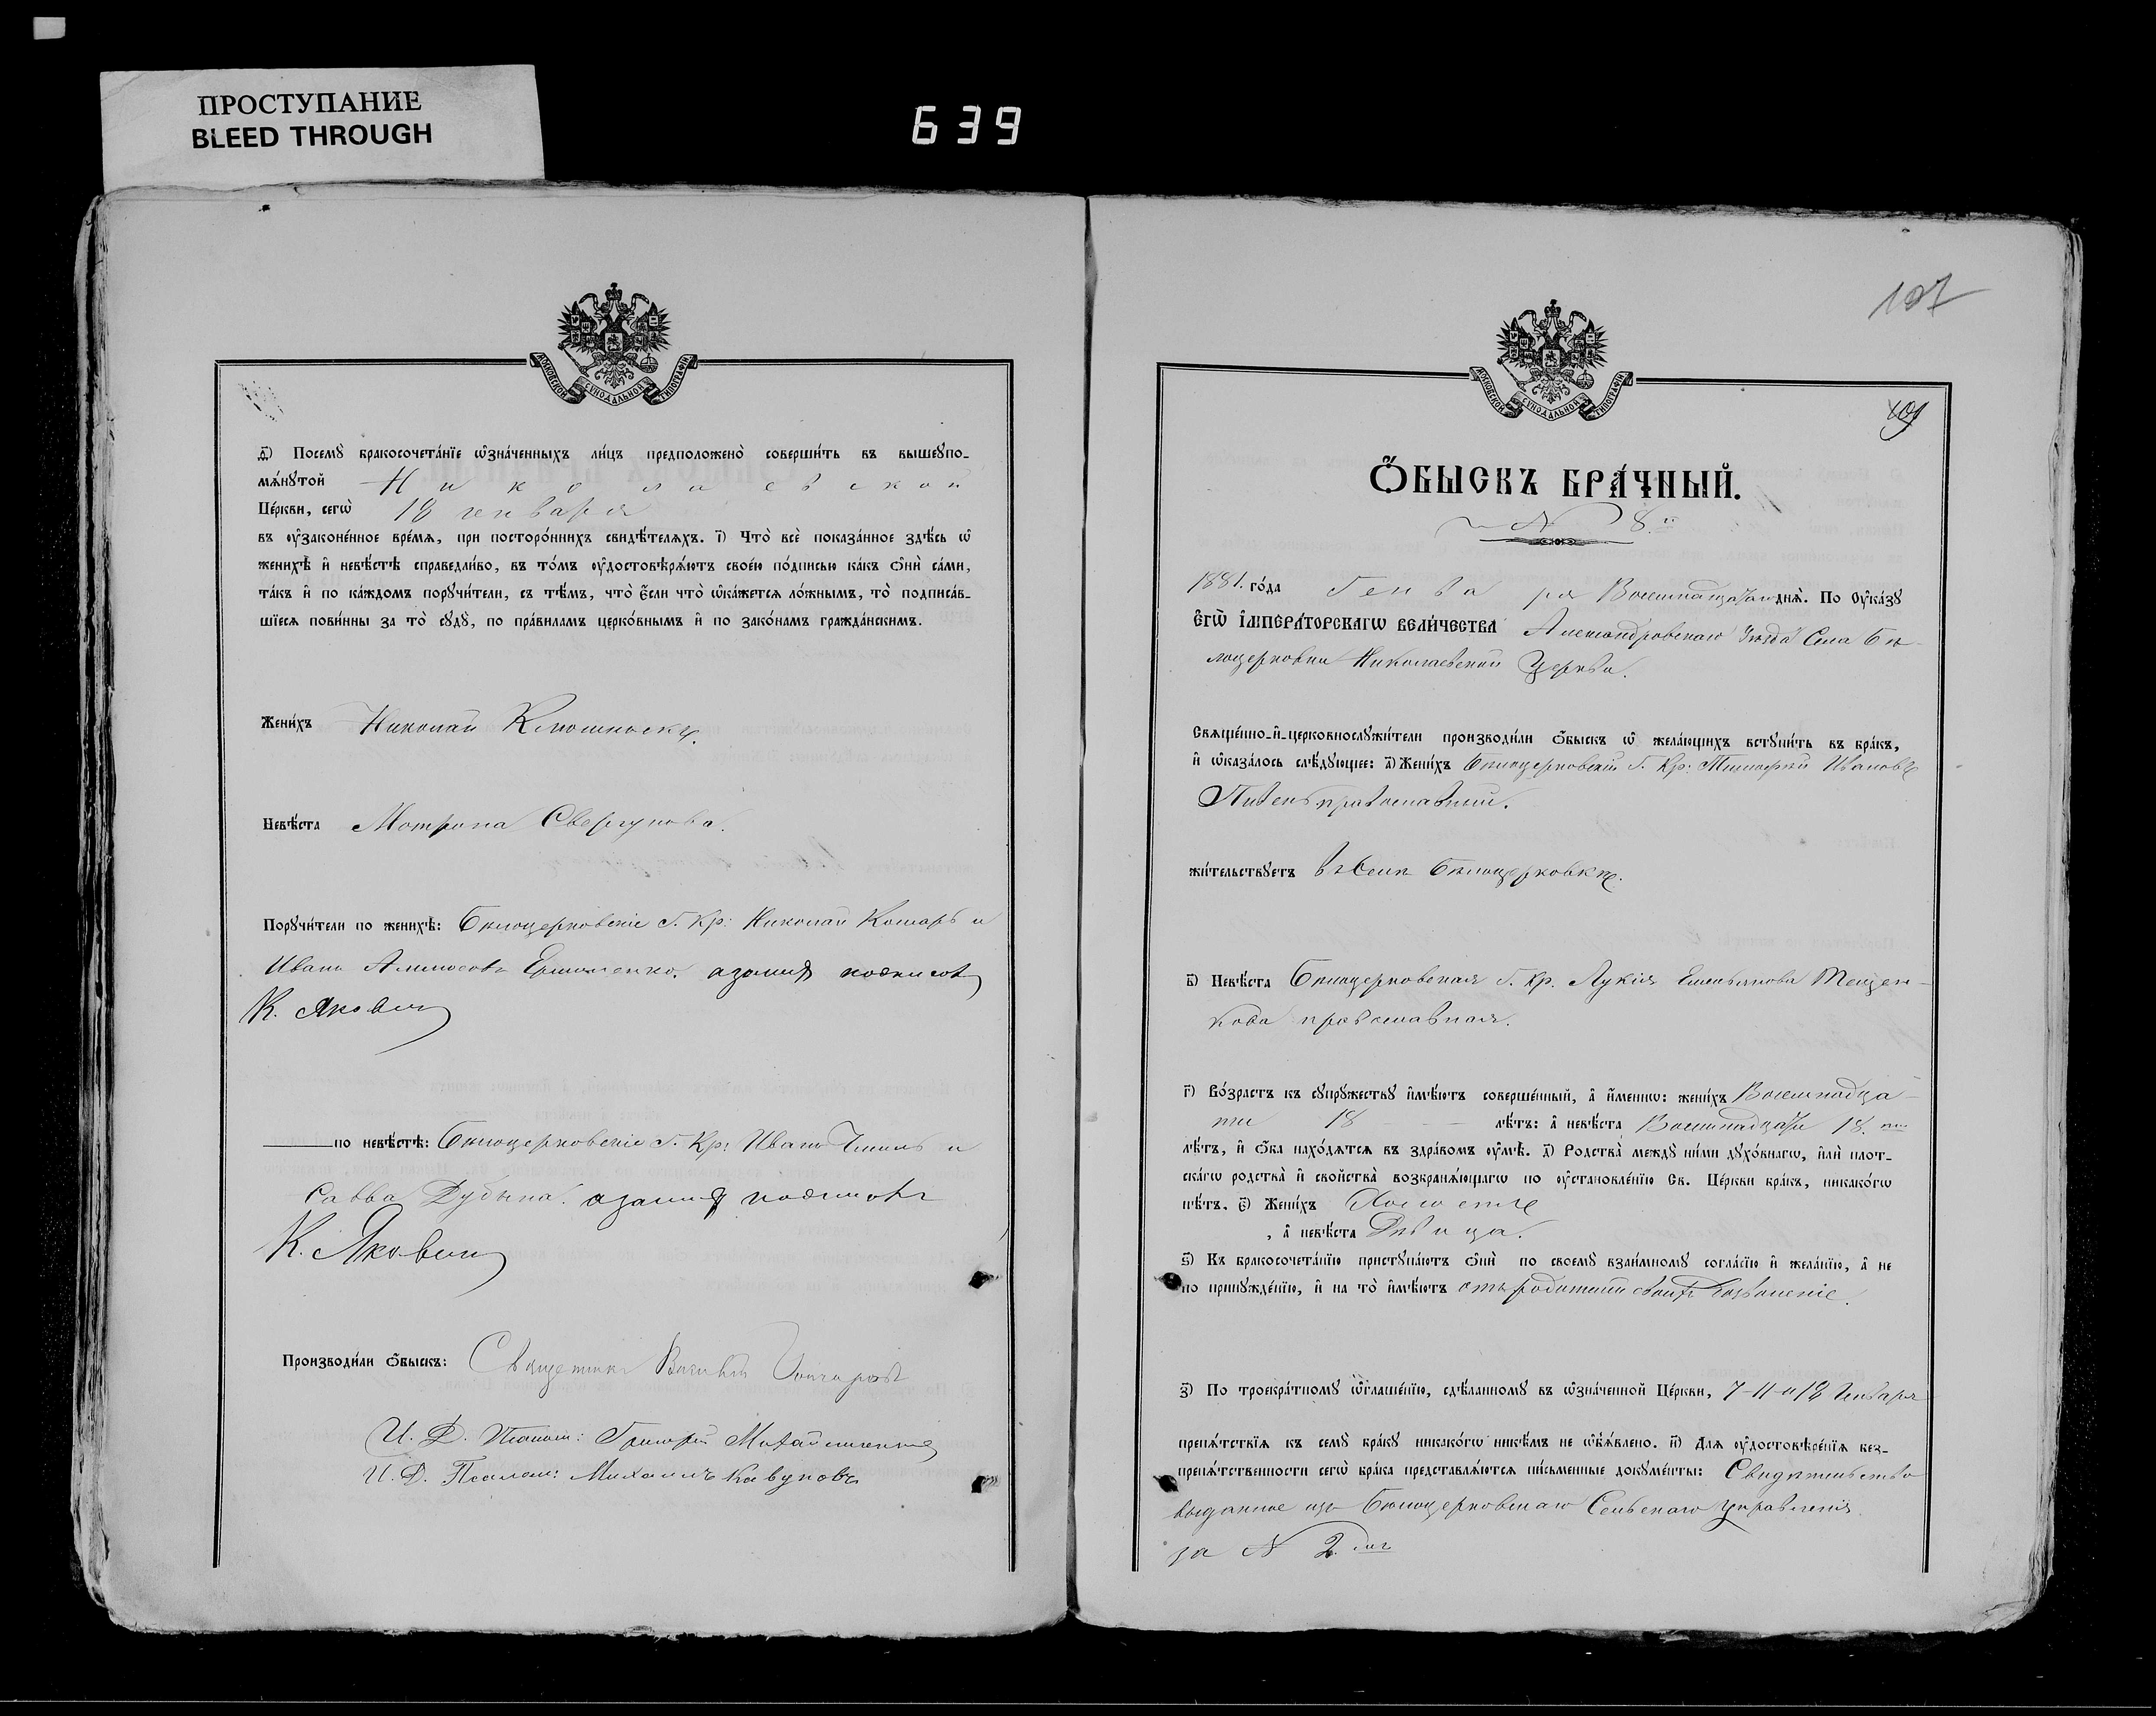 ПРОСТУПАНИЕ
BLEED THROUGH
639
МОСКОВСКОЙ СѴНОДАЛЬНОЙ ТИПОГРАФІИ
ѳ҃) Посемꙋ̀ бракосочета́нїе ѡ҆зна́ченныхъ ли́цъ предположено̀ соверши́ть въ вышеꙋпо-
мѧ́нꙋтой Николаевской
Це́ркви, сегѡ̀ 18 генваря
въ ᲂу҆зако́ненное вре́мѧ, при посторо́ннихъ свидѣ́телѧхъ. і҃) Что̀ всѐ пока́занное здѣ́сь ѡ҆
женихѣ̀ и҆ невѣ́стѣ справедли́во, въ то́мъ ᲂу҆достовѣрѧ́ютъ свое́ю по́дписью ка́къ ѻ҆нѝ са́ми,
та́къ и҆ по ка́ждомъ порꙋчи́тели, съ тѣ́мъ, что̀ є҆́сли что̀ ѡ҆ка́жетсѧ ло́жнымъ, то̀ подписа́в-
шїесѧ пови́нны за то̀ сꙋдꙋ̀, по пра́виламъ церко́внымъ и҆ по зако́намъ гражда́нскимъ.
Жени́хъ Николай
Невѣ́ста Мотрона Свергунова.
Порꙋчи́тели по женихѣ̀: Бѣлоцерковскіе Г. Кр: Николай Комаръ и
Иванъ Ермоленко.
К. Яковин
по невѣ́стѣ: Бѣлоцерковскіе Г. Кр: Иванъ и
Савва Дубина.
К. Яковин
Производи́ли ѻ҆́быскъ: Священникъ Василій Гончаровъ
И. Д. Григорій Михайличенко
И. Д. Псалом: Михаилъ Кавуновъ
107
МОСКОВСКОЙ СѴНОДАЛЬНОЙ ТИПОГРАФІИ
109
Ѻ҆́БЫСКЪ БРА́ЧНЫЙ.
№ 8.й
1881. го́да Генваря Восемнадцатаго днѧ̀. По ᲂу҆ка́зꙋ
Є҆ГѠ̀ І҆МПЕРА́ТОРСКАГѠ ВЕЛИ́ЧЕСТВА Александровскаго Уѣзда Села Бѣ-
лоцерковки Николаевской Церкви.
Свѧще́нно-и҆-церковнослꙋжи́тели производи́ли ѻ҆́быскъ ѡ҆ жела́ющихъ встꙋпи́ть въ бра́къ,
и҆ ѡ҆каза́лось слѣ́дꙋющее: а҃) Жени́хъ Бѣлоцерковскій Г. Кр: Тимофей Ивановъ
Пивень православный.
жи́тельствꙋетъ въ Селѣ Бѣлоцерковкѣ.
в҃) Невѣ́ста Бѣлоцерковская Г. Кр. Лукія Емельянова Тещен-
кова православная.
г҃) Во́зрастъ къ сꙋпрꙋ́жествꙋ и҆мѣ́ютъ соверше́нный, а҆ и҆́меннѡ: жени́хъ Восемнадца-
ти 18 лѣ́тъ: а҆ невѣ́ста Восемнадцати 18.ти
лѣ́тъ, и҆ ѻ҆́ба нахо́дѧтсѧ въ здра́вомъ ᲂу҆мѣ̀. д҃) Родства̀ междꙋ̀ ни́ми дꙋхо́внагѡ, и҆лѝ плот-
ска́гѡ родства̀ и҆ свойства̀ возбранѧ́ющагѡ по ᲂу҆становле́нїю Св. Це́ркви бра́къ, никако́гѡ
нѣ́тъ. є҃) Жени́хъ Холостъ
, а҆ невѣ́ста Дѣвица.
ѕ҃) Къ бракосочета́нїю пристꙋпа́ютъ ѻ҆нѝ по своемꙋ̀ взаи́мномꙋ согла́сїю и҆ жела́нїю, а҆ не
по принꙋжде́нїю, и҆ на то̀ и҆мѣ́ютъ отъ родителей своихъ дозволеніе.
з҃) По троекра́тномꙋ ѡ҆глаше́нїю, сдѣ́ланномꙋ въ ѡ҆зна́ченной Це́ркви, 7-11-и 18 Генваря
препѧ́тствїѧ къ семꙋ̀ бра́кꙋ никако́гѡ никѣ́мъ не ѡ҆б̾ѧ́влено. и҃) Длѧ ᲂу҆достовѣре́нїѧ без-
препѧ́тственности сегѡ̀ бра́ка представлѧ́ютсѧ пи́сьменные докꙋме́нты: Свидѣтельство
выданное изъ Бѣлоцерковскаго Сельскаго Управленія
за № 2.мъ